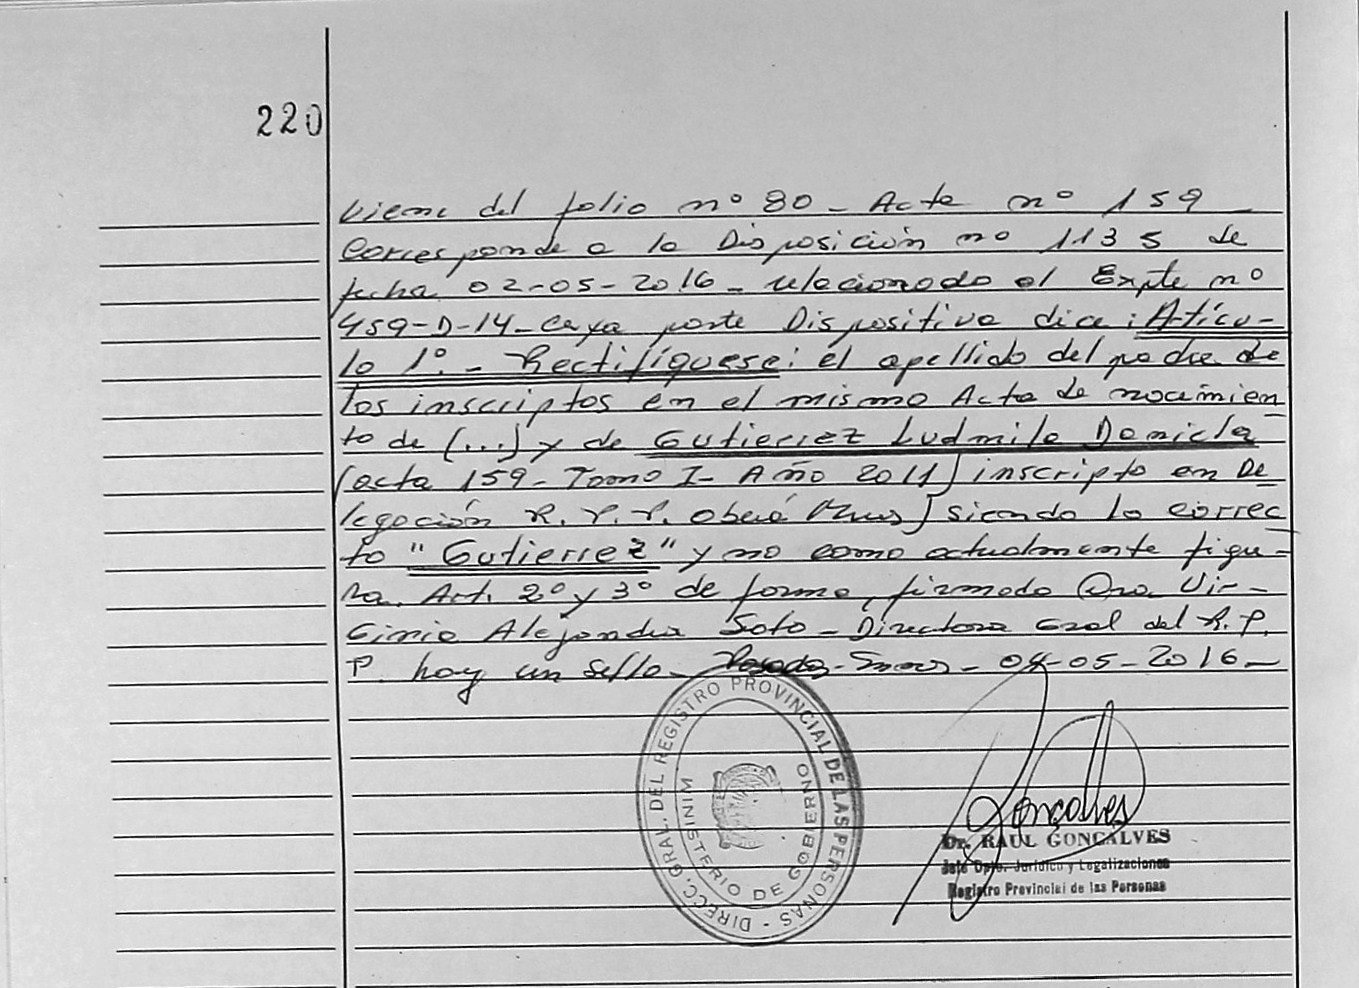 220
Viene del folio nº 80 - Acta nº 159
Corresponde a la Disposición nº 1135 de
fecha 02-05-2016 - relacionado al Expte nº
459-D-14 - cuya parte Dispositiva dice: Artícu-
lo 1º. - Rectifíquese: el apellido del padre de
los inscriptos en el mismo Acta de nacimien
to de (...) y de Gutierrez Ludmila Daniela
(acta 159 - Tomo I - Año 2011) inscripto en De
legación R.P.P. Oberá Mnes) siendo lo correc
to "Gutierrez" y no como actualmente figu-
ra. Art. 2º y 3º de forma, firmado Dra. Vir-
ginia Alejandra Soto - Directora Gral del R.P.
P. hay un sello - Posadas - Mnes - 04-05-2016 -
DIRECC. GRAL. DEL REGISTRO PROVINCIAL DE LAS PERSONAS -
MINISTERIO DE GOBIERNO
Goncalves
Dr. RAUL GONCALVES
Jefe Dpto. Jurídico y Legalizaciones
Registro Provincial de las Personas